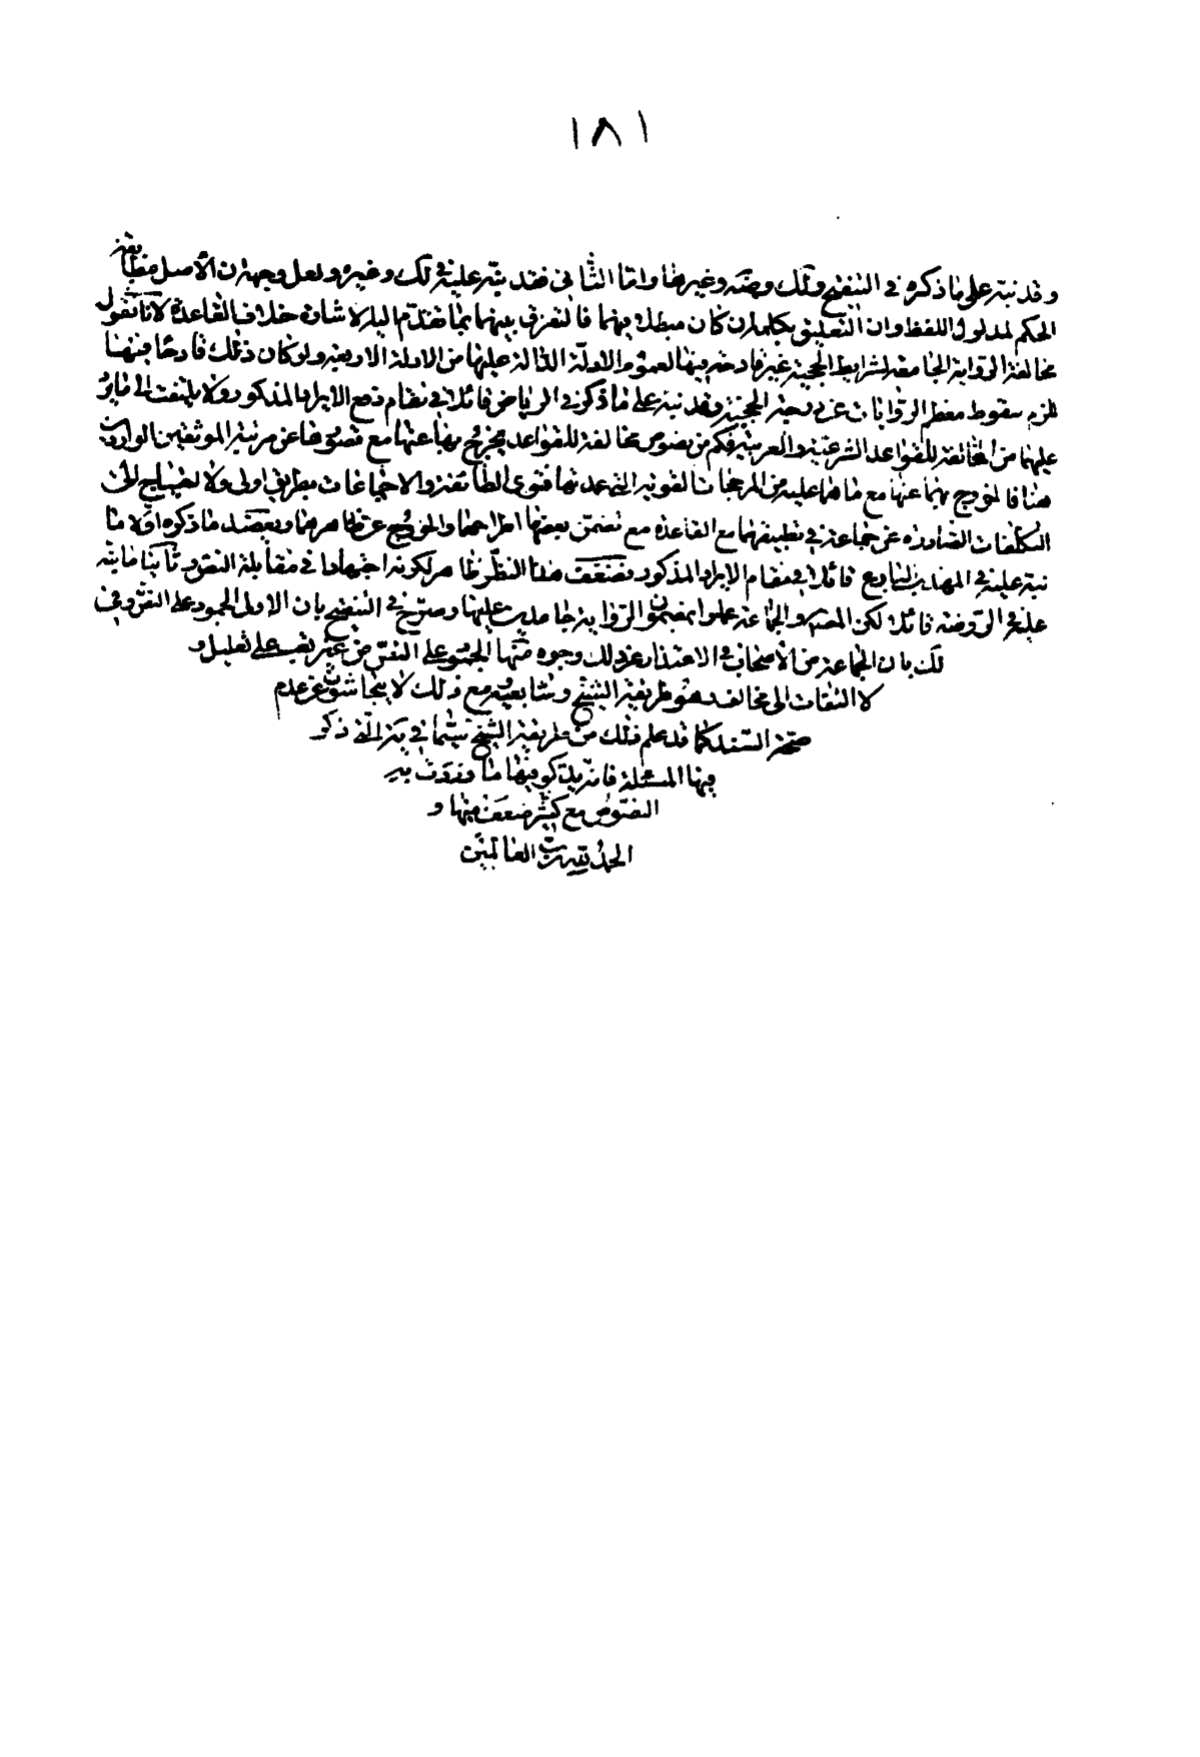 ١٨١
وقد نبه على ما ذكره في التنقيح ولك وضة وغيرها واما الثاني فقد نبه عليه في لك وغيره ولعل وجهه ان الأصل مطابقة
الحكم لمدلول اللفظ وان التعليق بكلمة ان كان مبطلا فيهما فالتفرق بينهما بما تقدم اليه الاشارة خلاف القاعدة لانا نقول
مخالفة الرواية الجامعة لشرايط الحجية غير قادحة فيها لعموم الادلة الدالة عليها من الادلة الاربعة ولو كان ذلك قادحا فيها
للزم سقوط معظم الروايات عن درجة الحجية وقد نبه على ما ذكر في الرياض قائلا في مقام دفع الايراد المذكور ولا يلتفت الى ما يرد
عليهما من المخالفة للقواعد الشرعية والعربية فكم من نصوص مخالفة للقواعد يخرج بها عنها مع قصورها عن مرتبة الموثقين الواردين
هنا فالخروج بهما عنها مع ما هما عليه من المرجحات القوية التي عمدتها فتوى الطائفة والاجماعات بطريق اولى ولا يحتاج الى
التكلفات الصادرة عن جماعة في تطبيقهما مع القاعدة مع تضمن بعضها اطراحهما والخروج عن ظاهرهما ويعضد ما ذكره اولا ما
نبه عليه في المهذب البارع قائلا في مقام الايراد المذكور وضعف هذا النظر ظاهر لكونه اجتهادا في مقابلة النص وثانيا ما نبه
عليه في الروضة قائلا لكن المصنف والجماعة عملوا بمضمون الرواية جامدين عليها وصرح في التنقيح بان الاولى الجمود على النص وفي
لك بان الجماعة من الأصحاب في الاعتذار عن ذلك وجوه منها الجمود على النص من غير تعليل و
لا التفات الى مخالفته وهو طريقة الشيخ ومتابعيه مع ذلك لا يتحاشون عن عدم
صحة السند كما قد علم ذلك من طريقة الشيخ سيما في ية التي ذكر
فيها المسئلة فانه يذكر فيها ما وردت به
النصوص مع كثر ضعف منها و
الحمد لله رب العالمين